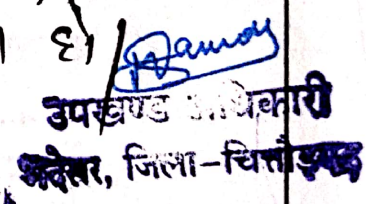 है।
उपखण्ड अधिकारी
भदेसर, जिला-चित्तौड़गढ़